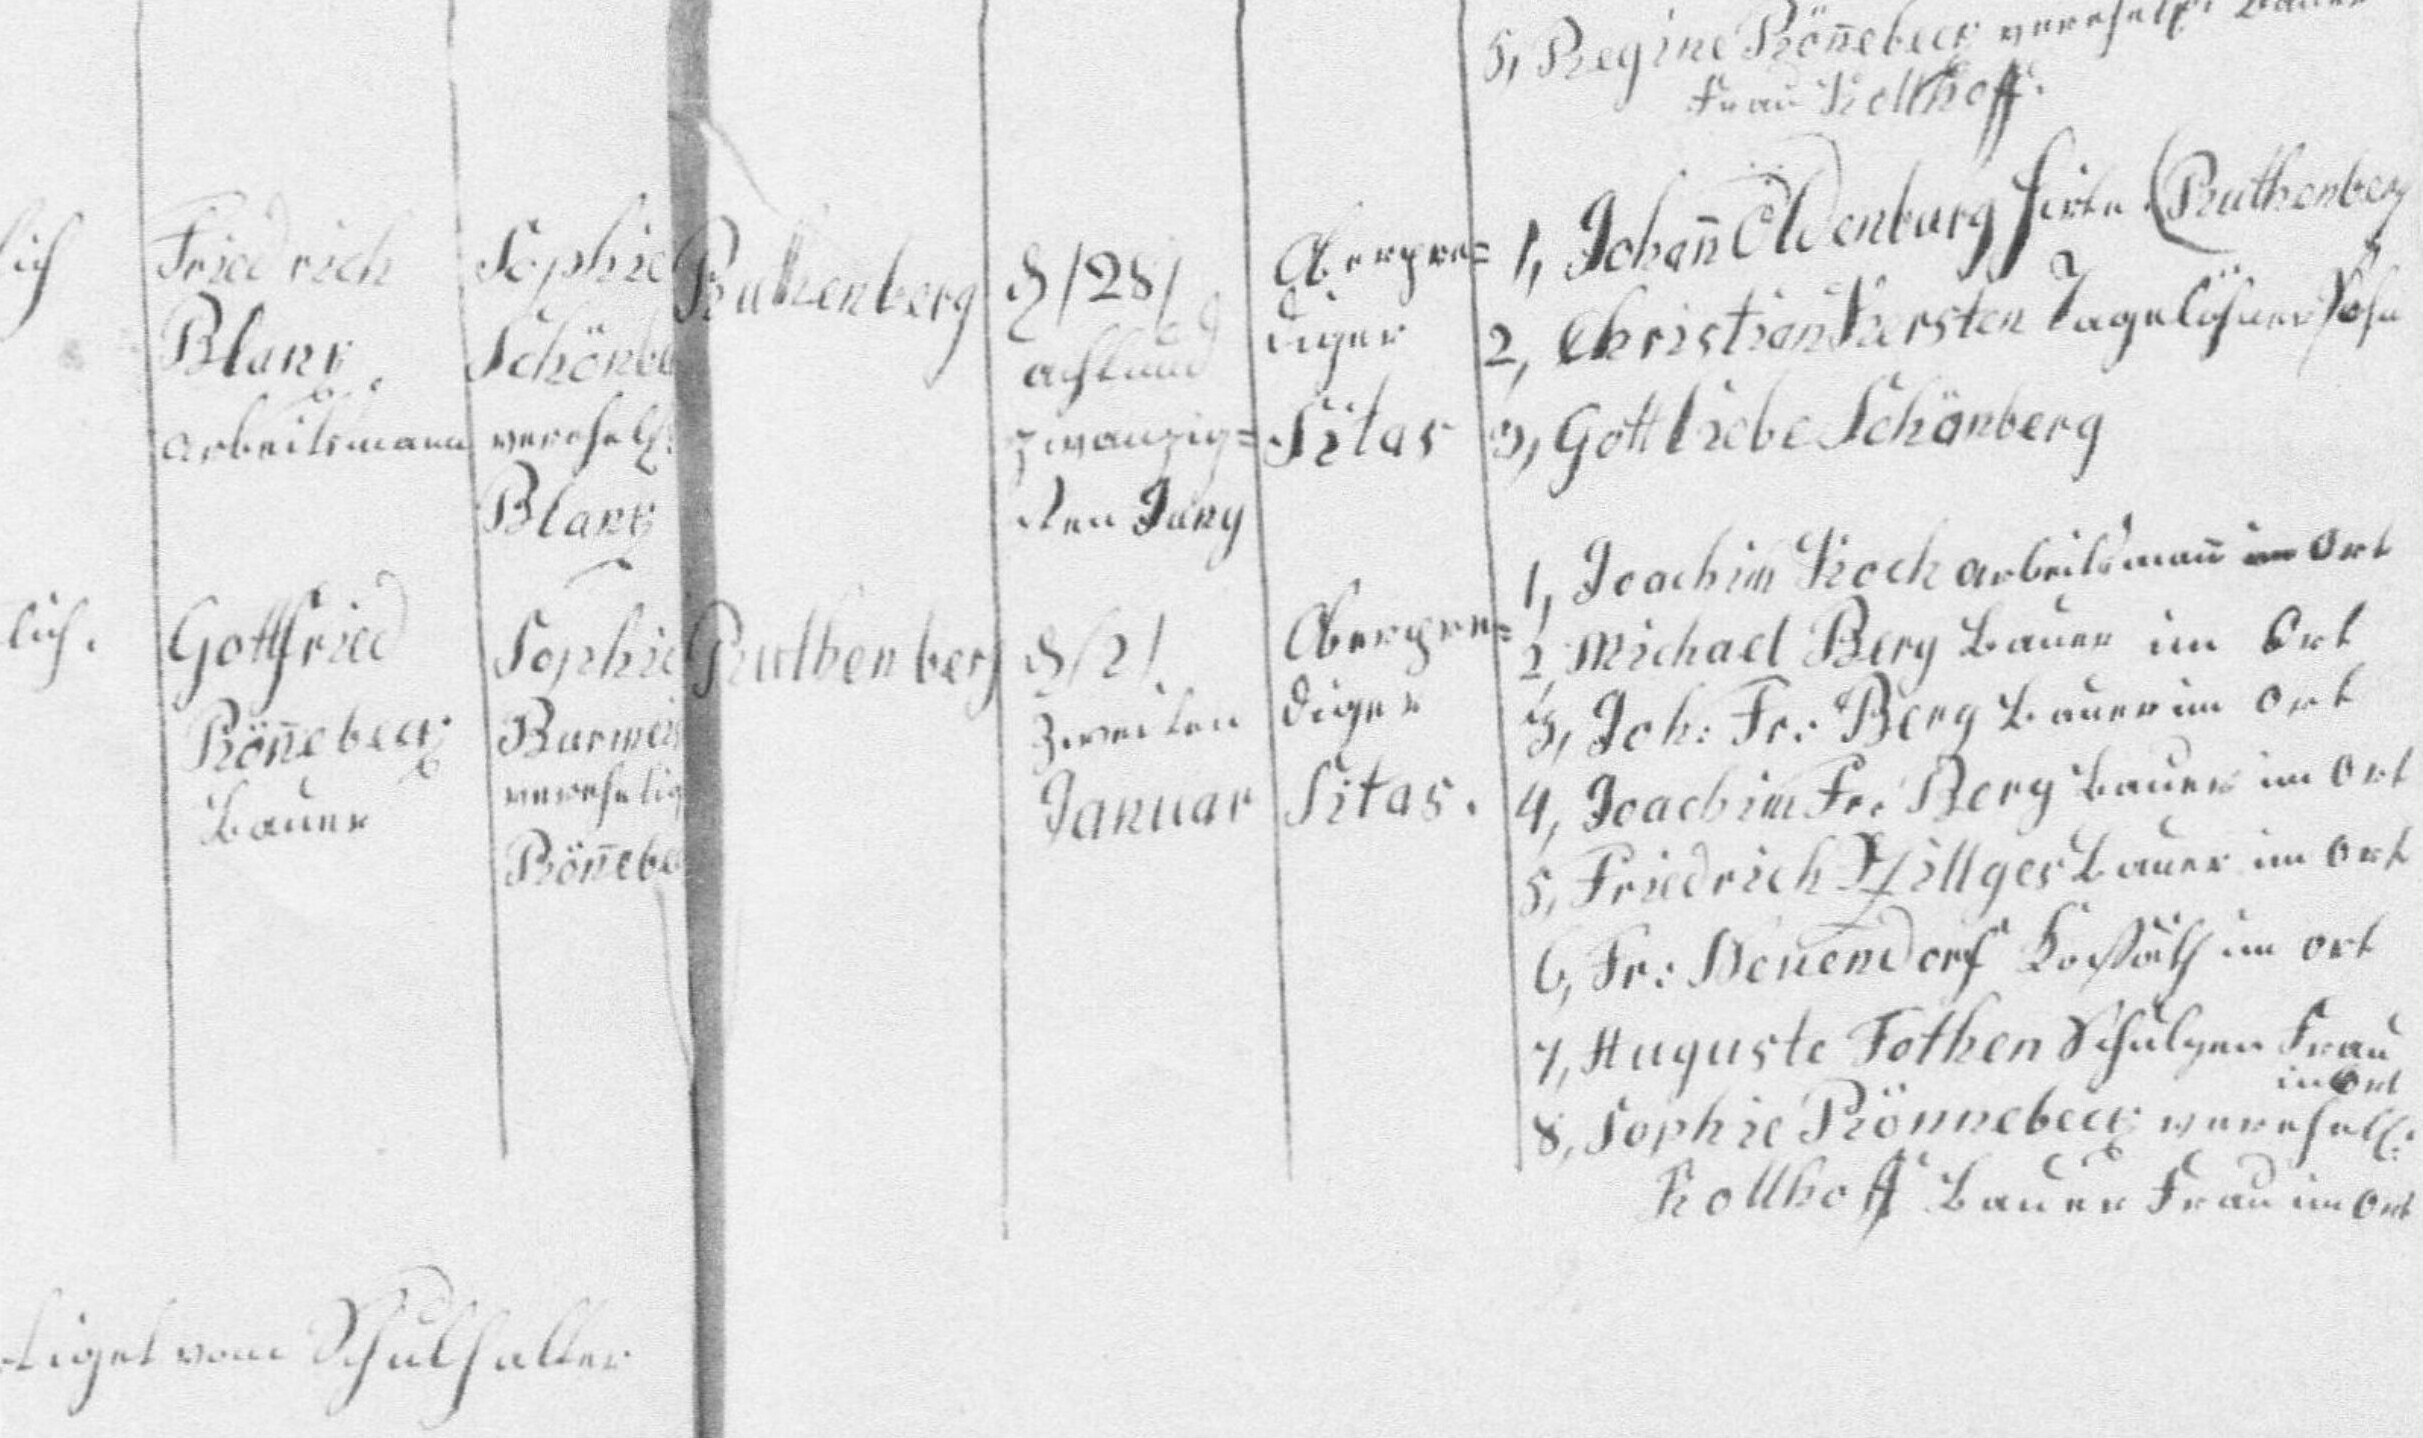 5, Regine Röñebeck verehel: Bauer
Frau Kollhoff.
lich
Friedrich
Blank
Arbeitsmann
Sophie
Schönbe
verehel:
Blank
Ruthenberg
d /28/
acht und
zwanzig=
sten Juny
Oberpre=
diger
Sitas
1, Johañ Oldenburg Hirte (Ruthenberg
2, Christian Kersten Tagelöhner Sohn
3, Gottliebe Schönberg
lich.
Gottfried
Röñebeck
Bauer
Sophie
Burmei
verehelig
Röñebe
Ruthenberg
d /2/
zweiten
Januar
Oberpre=
diger
Sitas.
1, Joachim Koch Arbeitsmañ im Ort
2, Michael Berg Bauer im Ort
3, Joh: Fr: Berg Bauer im Ort
4, Joachim Fr: Berg Bauer im Ort
5, Friedrich Zillges Bauer im Ort
6, Fr: Neuendorf Kossäth im Ort
7, Auguste Tothen Schulzen Frau
im Ort
8, Sophie Rönnebeck verehel:
Kollhoff Bauer Frau im Ort
tiget vom Schulhalter